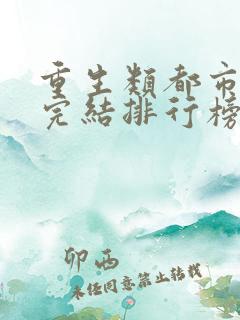 重生類都市
完結排行榜
卯西
未经同意禁止转载